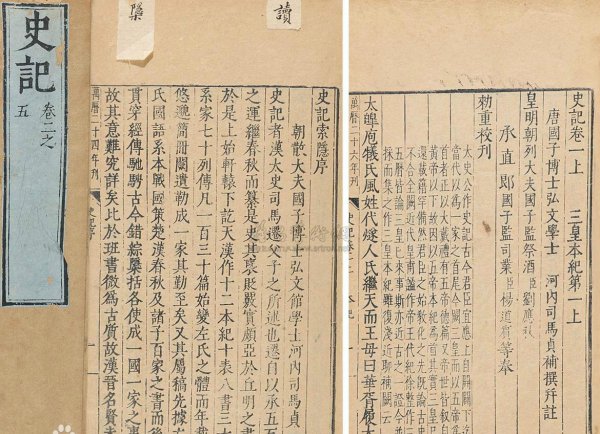 史記
卷二之
五
讀
史記索隱序
朝散大夫國子博士弘文館學士河內司馬貞
史記者漢太史司馬遷父子之所述也遷自以承五百
之運繼春秋而纂是史其褒貶覈實頗亞於丘明之書
於是上始軒轅下訖天漢作十二本紀十表八書三十
系家七十列傳凡一百三十篇始變左氏之體而年載
悠邈簡冊闕遺勒成一家其勤至矣又其屬稿先據左
氏國語系本戰國策楚漢春秋及諸子百家之書而後
貫穿經傳馳騁古今錯綜檃括各使成一國一家之事
故其意難究詳矣比於班書微為古質故漢晉名賢未
萬曆二十四年刊
史記序
史記卷一上 三皇本紀第一上
唐國子博士弘文學士 河內司馬貞補撰幷註
皇明朝列大夫國子監祭酒臣劉應秋
承直郎國子監司業臣楊道賓等奉
勅重校刊
太史公作史記古今君臣宜應上自開闢下迄
當代以為一家之首尾今闕三皇而以五帝為
首者正以大戴禮有五帝德篇又帝世皆敘自
黃帝以下故因以五帝本紀為首其實三皇已
還載籍罕備然君臣之始教化之先既論古史
不合全闕近代皇甫謐作帝王代紀徐整作三
五曆皆論三皇以來事斯亦近古之一證今並
採而集之作三皇本紀雖復淺近聊補闕云
太皥庖犧氏風姓代燧人氏繼天而王母曰華胥履大
萬曆二十六年刊
史記卷一